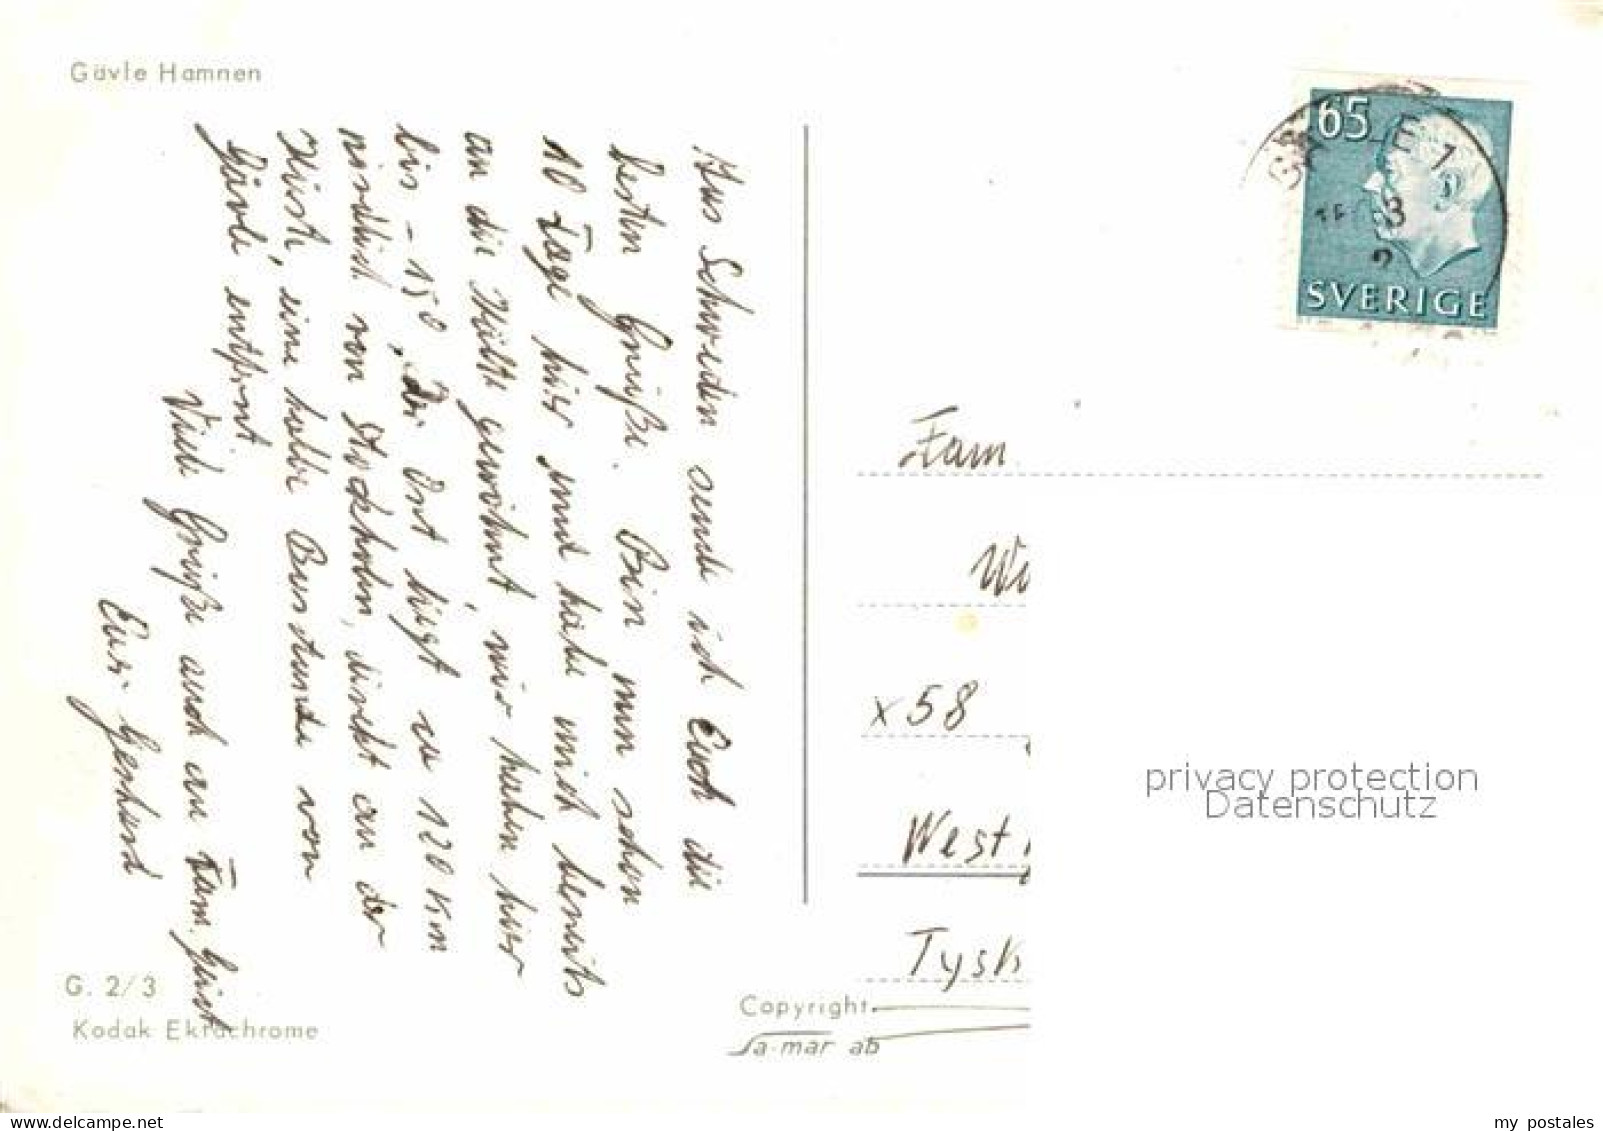 Gävle Hamnen
Aus Schweden sende ich Euch die
besten Grüße. Bin nun schon
10 Tage hier und habe mich bereits
an die Kälte gewöhnt, wir haben hier
bis - 15°. Der Ort liegt ca 120 km
nördlich von Stockholm, direkt an der
Küste, eine halbe Busstunde von
Gävle entfernt
Viele Grüße auch an Fam.
Euer Gerhard
G. 2/3
Kodak Ektachrome
Copyright
Sa-mar ab
65
SVERIGE
GÄVLE 1
Fam
x58
West
Tysk
privacy protection
Datenschutz
delcampe.net
my postales